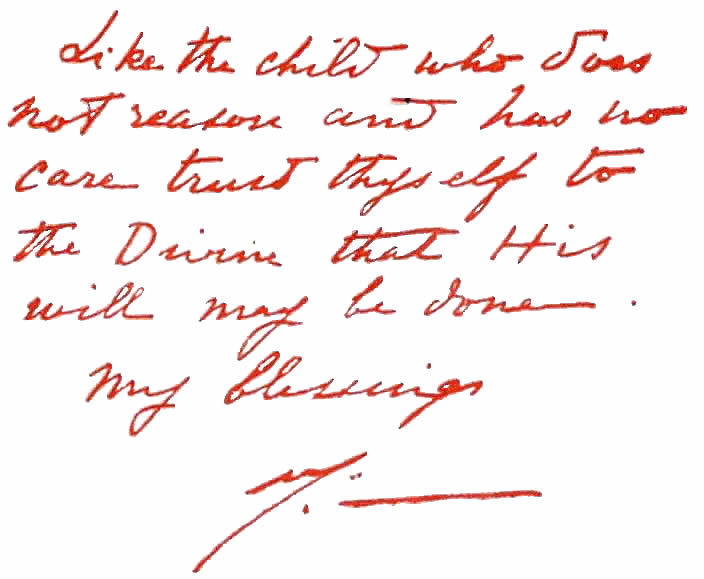 Like the child who does
not reason and has no
care trust thyself to
the Divine that His
will may be done.
My blessings